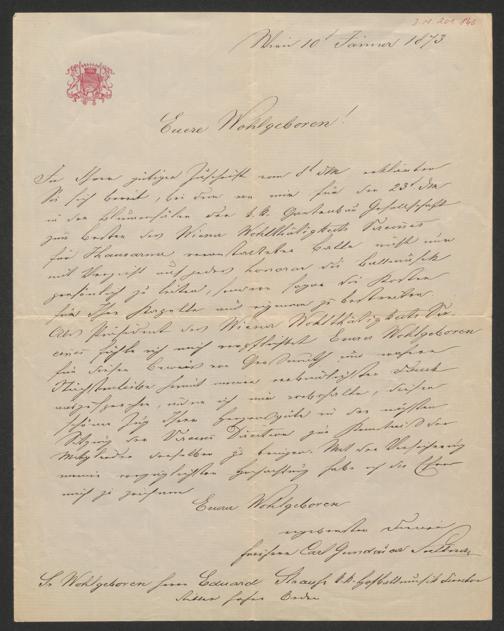 J.N. 201.846
Wien 10t Jänner 1873
Euere Wohlgeboren!
In Ihrer gütigen Zuschrift vom 8t dM erklärten
Sie sich bereit, bei dem von mir für den 23t dM
in den Blumensälen der k.k. Gartenbau Gesellschaft
zum Besten des Wiener Wohlthätigkeits Vereines
für Hausarme, veranstalteten Balle nicht nur
mit Verzicht auf jedes Honorar die Ballmusik
persönlich zu leiten, sondern sogar die Kosten
für Ihre Kapelle aus eigenem zu bestreiten.
Als Präsident des Wiener Wohlthätigkeits Ver
eines fühle ich mich verpflichtet Euer Wohlgeboren
für diesen Beweis von und wahrer
Nächstenliebe hiermit meinen verbindlichsten Dank
auszusprechen, indem ich mir vorbehalte, diesen
schönen Zug Ihrer Herzensgüte in der nächsten
Sitzung der Vereins Direction zur Kenntniß der
Mitglieder derselben zu bringen. Mit der Versicherung
meiner vorzüglichsten Hochachtung habe ich die Ehre
mich zu zeichnen
Euer Wohlgeboren
ergebenster Diener
Freiherr Carl
Sr Wohlgeboren Herrn Eduard Strauss k.k. Hofballmusik Director
Ritter hoher Orden